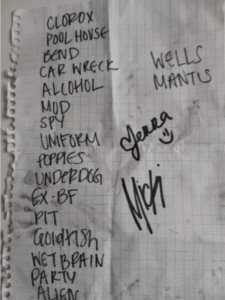 CLOROX
POOL HOUSE
BEND
CAR WRECK
ALCOHOL
MOD
SPY
UNIFORM
POPPIES
UNDERDOG
EX-BF
PIT
GOLDFISH
WET BRAIN
PARTY
ALIEN
WELLS
MANTIS
Jenna